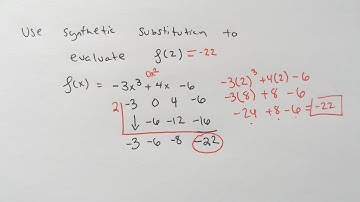 Use synthetic Substitution to
evaluate f(2) = -22
0x²
f(x) = -3x³ + 4x - 6
2 | -3 0 4 -6
↓ -6 -12 -16
-3 -6 -8 -22
-3(2)³ + 4(2) - 6
-3(8) + 8 - 6
-24 + 8 - 6 = -22